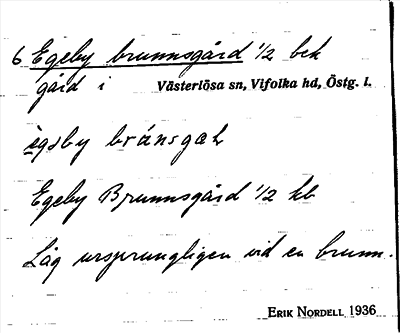 6 Egeby brunnsgård 1/2 bek
gård i Västerlösa sn, Vifolka hd, Östg. l.
ègsby bránsgaɫ
Egeby Brunnsgård 1/2 kb
Låg ursprungligen vid en brunn.
ERIK NORDELL 1936